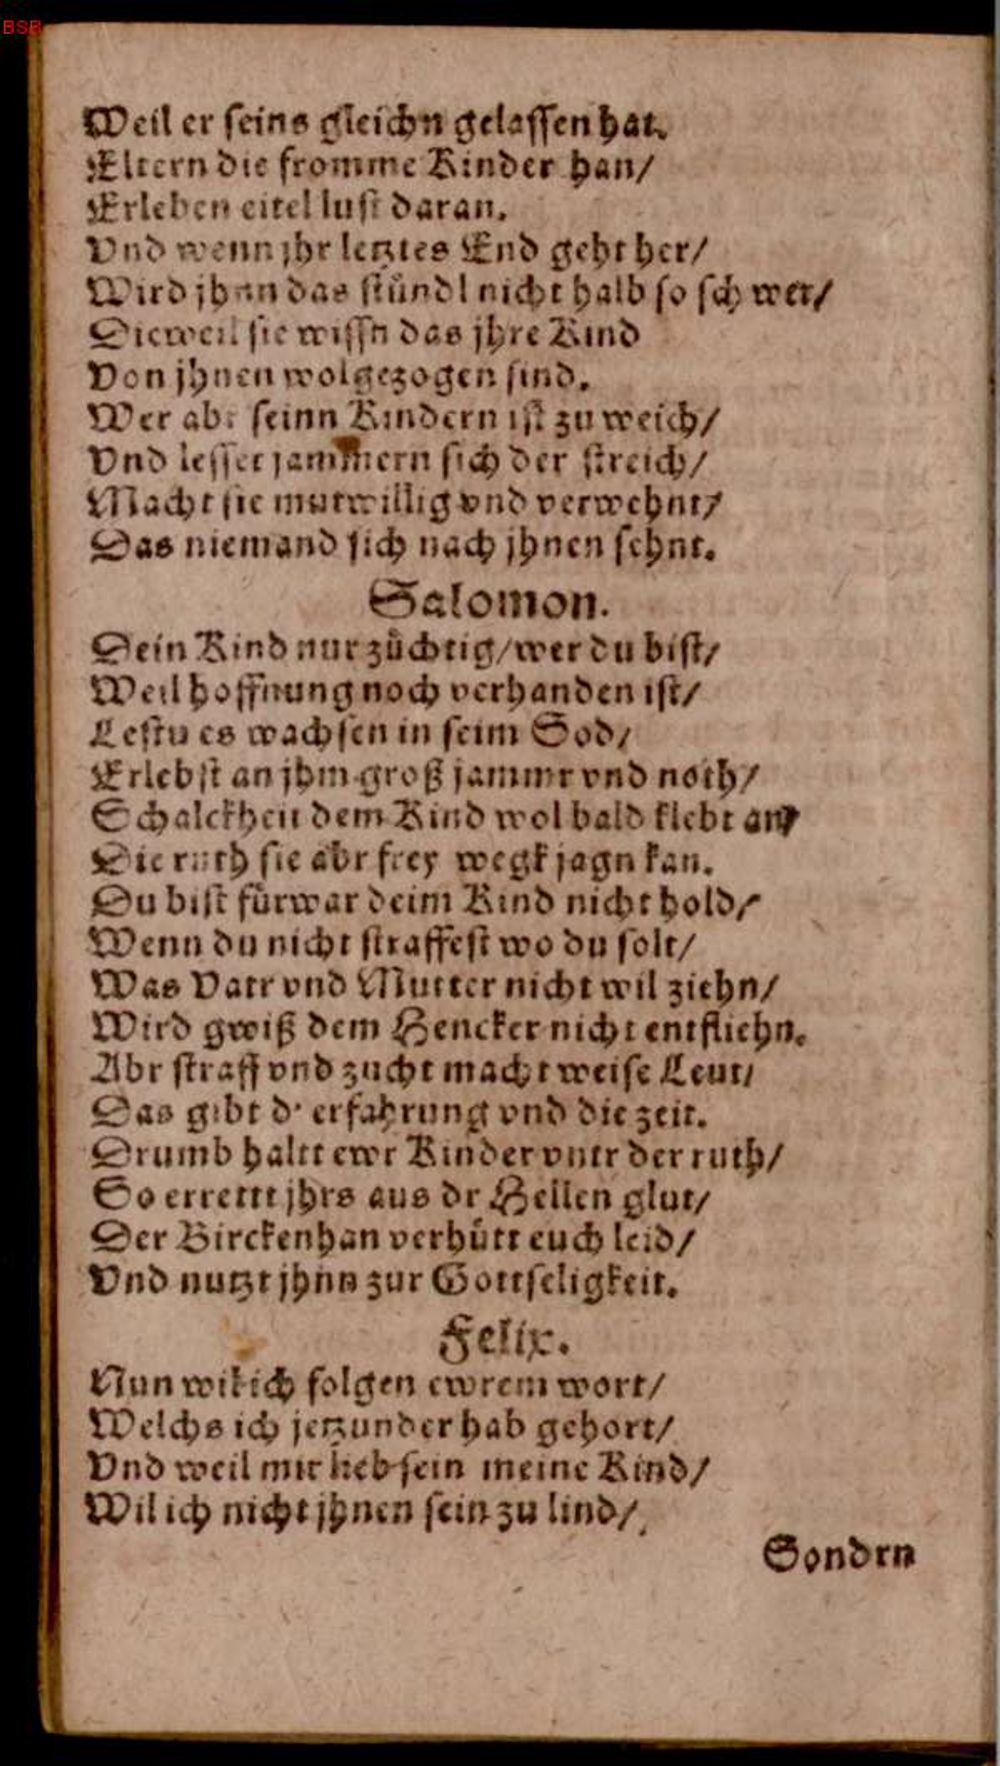 BSB
Weil er seins gleichn gelassen hat.
Eltern die fromme Kinder han/
Erleben eitel lust daran.
Vnd wenn jhr letztes End geht her/
Wird jhnn das stündl nicht halb so schwer/
Dieweil sie wissn das jhre Kind
Von jhnen wolgezogen sind.
Wer abr seinn Kindern ist zu weich/
Vnd lesset jammern sich der streich/
Macht sie mutwillig vnd verwehnt/
Das niemand sich nach jhnen sehnt.
Salomon.
Dein Kind nur züchtig/wer du bist/
Weil hoffnung noch verhanden ist/
Lestu es wachsen in seim Sod/
Erlebst an jhm groß jammr vnd noth/
Schalckheit dem Kind wol bald klebt an/
Die ruth sie abr frey wegk jagn kan.
Du bist fürwar deim Kind nicht hold/
Wenn du nicht straffest wo du solt/
Was Vatr vnd Mutter nicht wil ziehn/
Wird gwiß dem Hencker nicht entfliehn.
Abr straff vnd zucht macht weise Leut/
Das gibt d' erfahrung vnd die zeit.
Drumb haltt ewr Kinder vntr der ruth/
So errettt jhrs aus dr Hellen glut/
Der Birckenhan verhütt euch leid/
Vnd nutzt jhnn zur Gottseligkeit.
Felix.
Nun wil ich folgen ewrem wort/
Welchs ich jetzunder hab gehort/
Vnd weil mir lieb sein meine Kind/
Wil ich nicht jhnen sein zu lind/
Sondrn